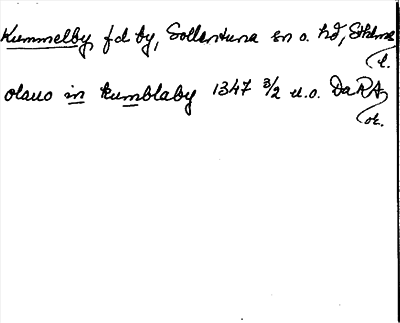 Kummelby, f d by, Sollentuna sn o. hd, Sthlms
l.
olauo in kumblaby 1347 3/2 u.o. DaRA,
or.